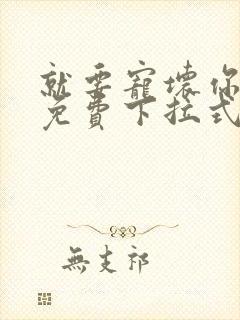 就要寵壞你
免費下拉式
無支祁